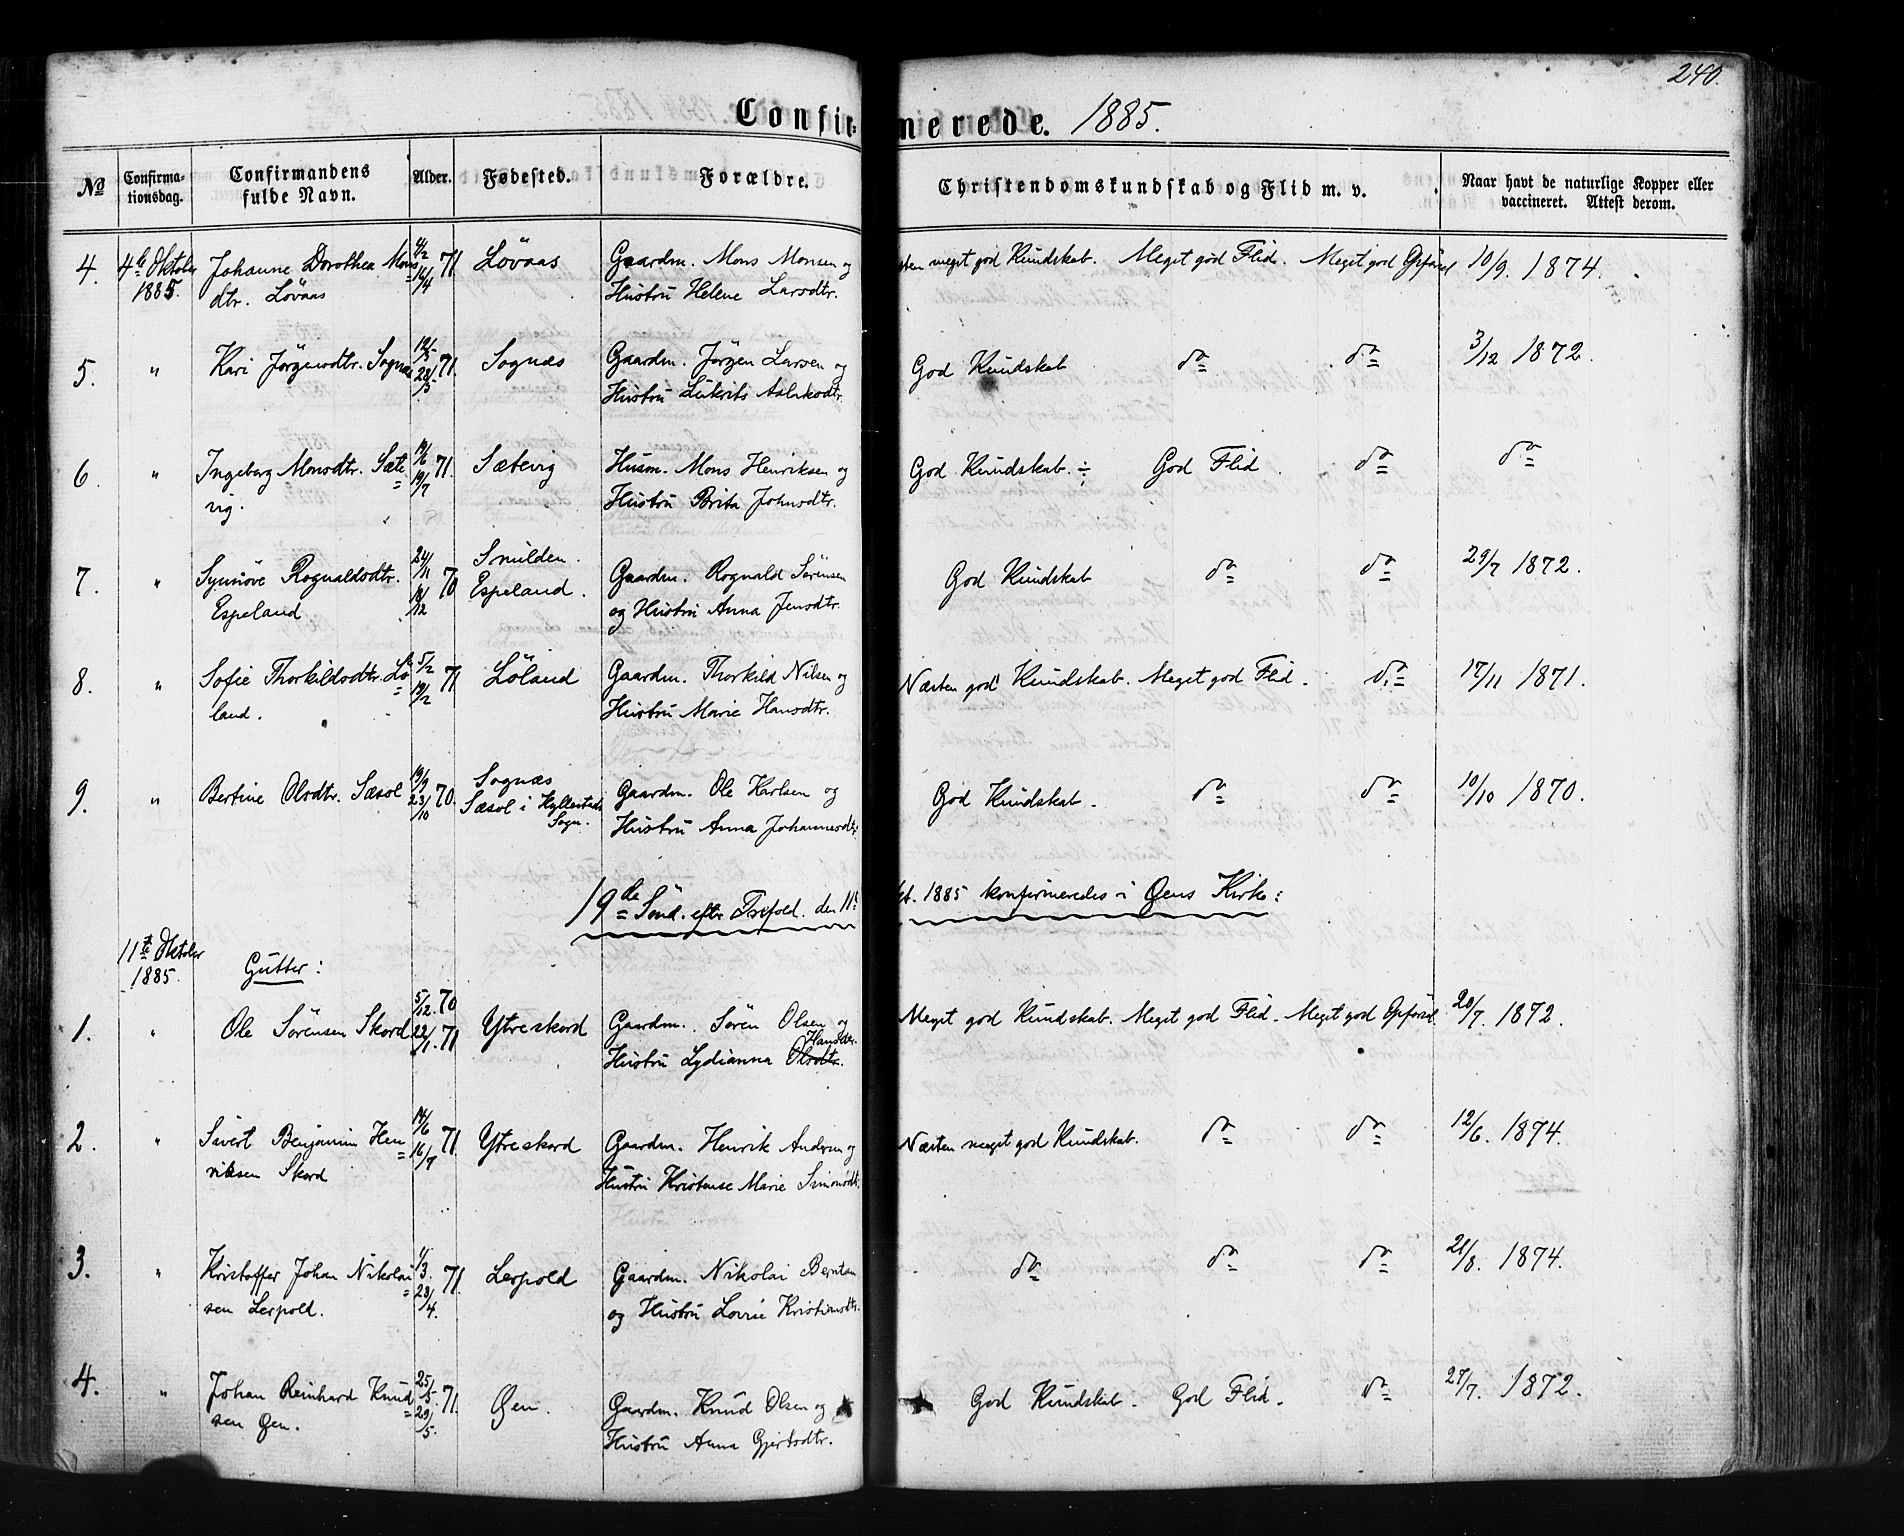 240.
Confirmerede. 1885.
No
Confirmationsdag.
Confirmandens fulde Navn.
Alder.
Fødested.
Forældre.
Christendomskundskab og Flid m. v.
Naar havt de naturlige Kopper eller vaccineret. Attest derom.
4. 4de Oktober Johanne Dorothea Mons 71 Løvaas Gaardm. Mons Monsen og meget god Kundskab. Meget god Flid. Meget god Opførsel 10/9. 1874.
1885. dtr. Løvaas 16/4 Hustru Helene Larsdtr.
5. " Kari Jørgensdtr. Sognæs 71. Sognæs Gaardm. Jørgen Larsen og God Kundskab do do 3/12 1872.
28/5 Hustru Aslaksdtr.
6. " Ingeborg Monsdtr. Sæte 71. Sætevig Husm. Mons Henriksen og God Kundskab ÷ God Flid. do do
vig. 19/7 Hustru Brita Johnsdtr.
24/11 Smilden.
7. " Synnøve Rognaldsdtr. 70 Espeland. Gaardm. Rognald Sørensen God Kundskab do do 29/7 1872.
Espeland 18/12 og Hustru Anna Jensdtr.
8. " Sofie Thorkildsdtr. Lø 5/2 71 Løland Gaardm. Thorkild Nilsen og Næsten god Kundskab. Meget god Flid. do 17/11 1871.
land. 19/2 Hustru Marie Hansdtr.
19/9 Sognæs
9. " Bertine Olsdtr. Sæsol 70. Sæsol i Hyllestad Gaardm. Ole Karlsen og God Kundskab. do do 10/10 1870.
23/10 Sogn. Hustru Anna Johannesdtr.
19de Sønd. efter Trefold. den 11te Okt. 1885 konfirmeredes i Øens Kirke:
11te Oktober
1885. Gutter:
5/12. 70
1. " Ole Sørensen Skord 22/1. 71 Ytreskord Gaardm. Søren Olsen og Meget god Kundskab. Meget god Flid. Meget god Opførsel 20/7. 1872.
Hansdtr.
Hustru Lydianna Olsdtr.
2. " Sivert Benjamin Hen 14/6 71 Ytreskord Gaardm. Henrik Andersen og Næsten meget god Kundskab. do do 12/6. 1874.
riksen Skord 16/7 Hustru Kristense Marie Simonsdtr.
3. " Kristoffer Johan Nikolai 1/3. 71. Lerpold Gaardm. Nikolai Berntsen do do do 21/8. 1874.
sen Lerpold. 23/4. og Hustru Lovise Kristiansdtr.
4. " Johan Reinhard Knud 25/5. 71. Øen. Gaardm. Knud Olsen og God Kundskab. God Flid. do 27/7. 1872.
sen Øen. 29/5. Hustru Anna Gjertsdtr.